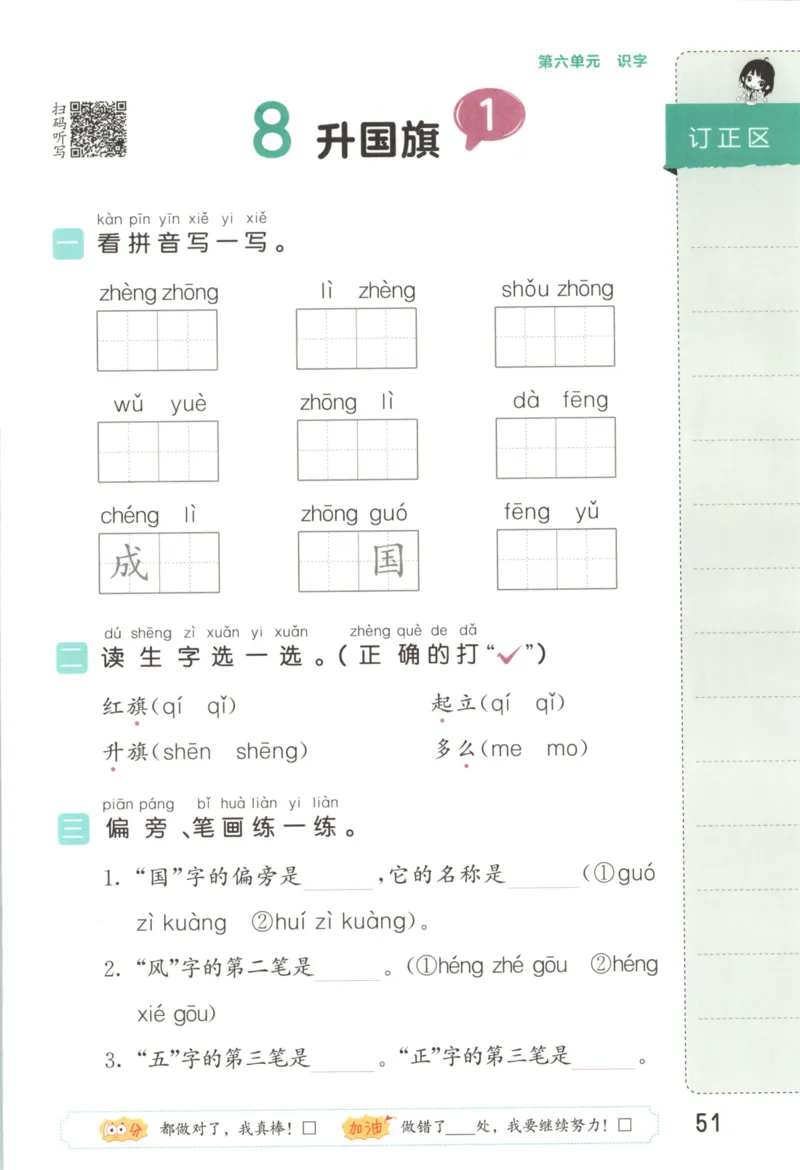 第六单元 识字
扫码听写
8 升国旗 1
订正区
kàn pīn yīn xiě yi xiě
一 看拼音写一写。
zhèng zhōng lì zhèng shǒu zhōng
wǔ yuè zhōng lì dà fēng
chéng lì zhōng guó fēng yǔ
成 国
dú shēng zì xuǎn yi xuǎn zhèng què de dǎ
二 读生字选一选。(正确的打“✓”)
红旗(qí qǐ) 起立(qí qǐ)
升旗(shēn shēng) 多么(me mo)
piān páng bǐ huà liàn yi liàn
三 偏旁、笔画练一练。
1. “国”字的偏旁是______,它的名称是______(①guó
zì kuàng ②huí zì kuàng)。
2. “风”字的第二笔是______。(①héng zhé gōu ②héng
xié gōu)
3. “五”字的第三笔是______。“正”字的第三笔是______。
100分 都做对了,我真棒!□ 加油 做错了___处,我要继续努力!□
51